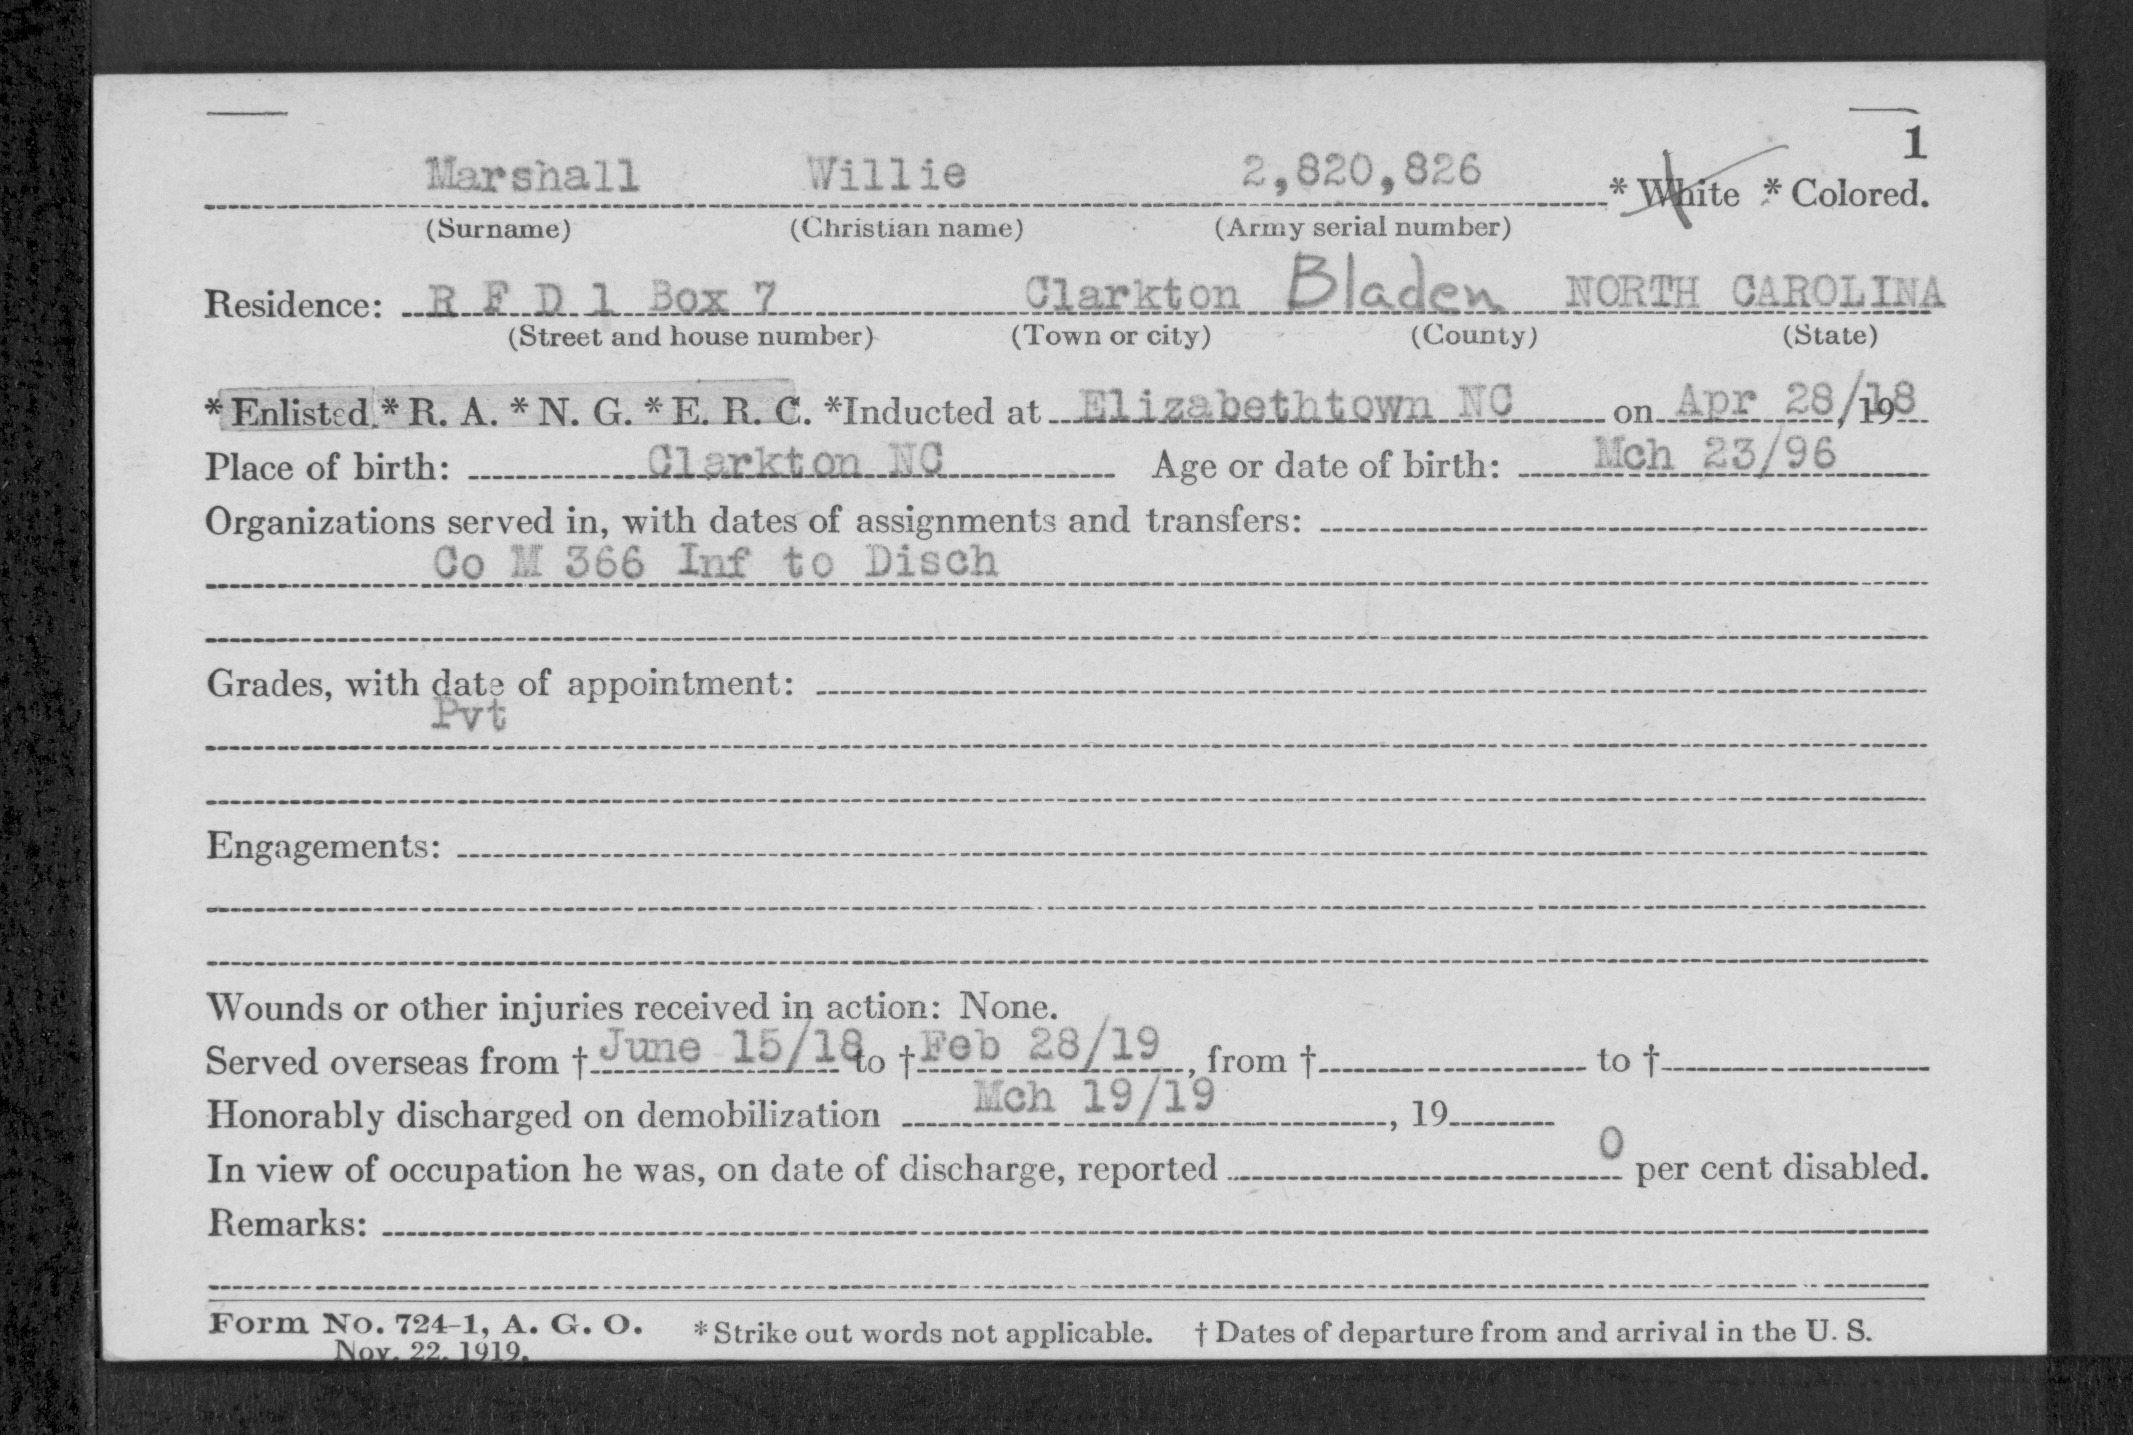 1
Marshall Willie 2,820,826 * White * Colored.
(Surname) (Christian name) (Army serial number)
Residence: R F D 1 Box 7 Clarkton Bladen NORTH CAROLINA
(Street and house number) (Town or city) (County) (State)
* Enlisted * R. A. * N. G. * E. R. C. *Inducted at Elizabethtown NC on Apr 28/18, 19
Place of birth: Clarkton NC Age or date of birth: Mch 23/96
Organizations served in, with dates of assignments and transfers:
Co M 366 Inf to Disch
Grades, with date of appointment:
Pvt
Engagements:
Wounds or other injuries received in action: None.
Served overseas from † June 15/18 to † Feb 28/19, from † to †
Honorably discharged on demobilization Mch 19/19, 19
In view of occupation he was, on date of discharge, reported 0 per cent disabled.
Remarks:
Form No. 724-1, A. G. O. * Strike out words not applicable. † Dates of departure from and arrival in the U. S.
Nov. 22, 1919.